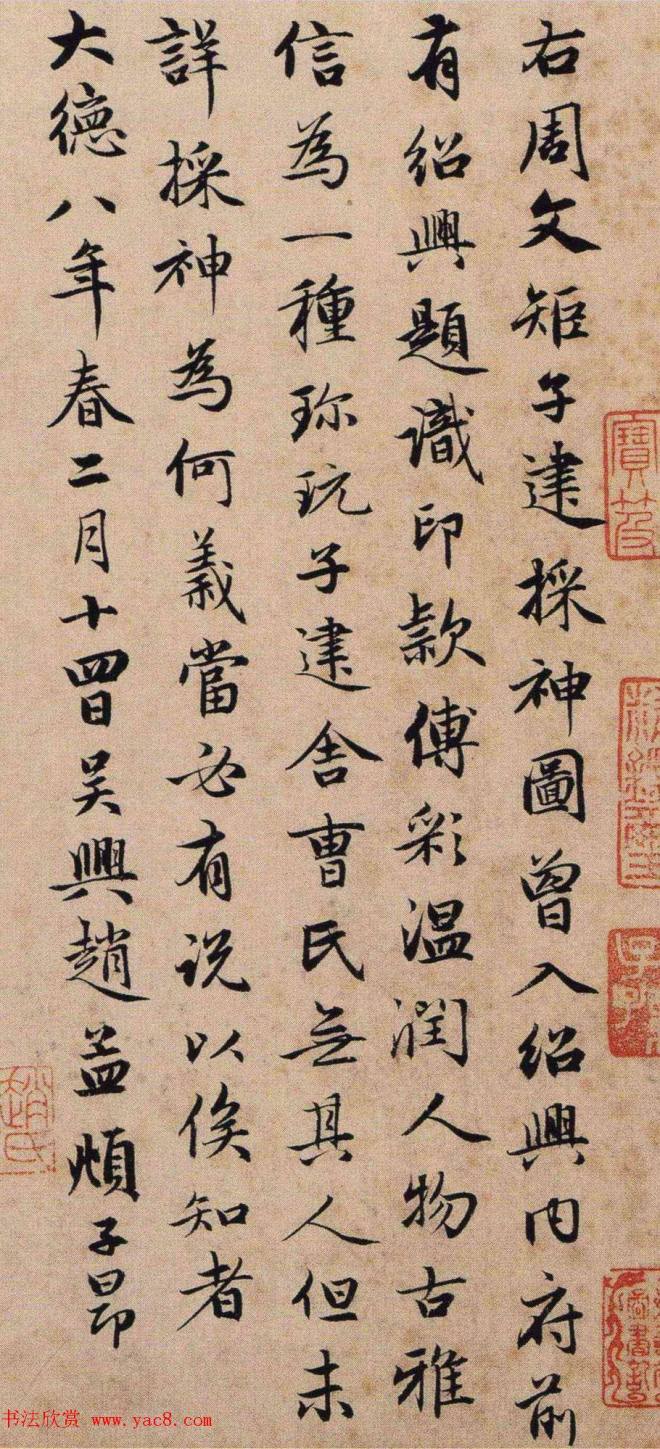 右周文矩子建採神圖曾入紹興內府前
有紹興題識印款傅彩温潤人物古雅
信為一種珎玩子建舎曹氏無其人但未
詳採神為何義當必有说以俟知者
大德八年春二月十四日吴興趙孟頫子昂
趙氏
书法欣赏 www.yac8.com